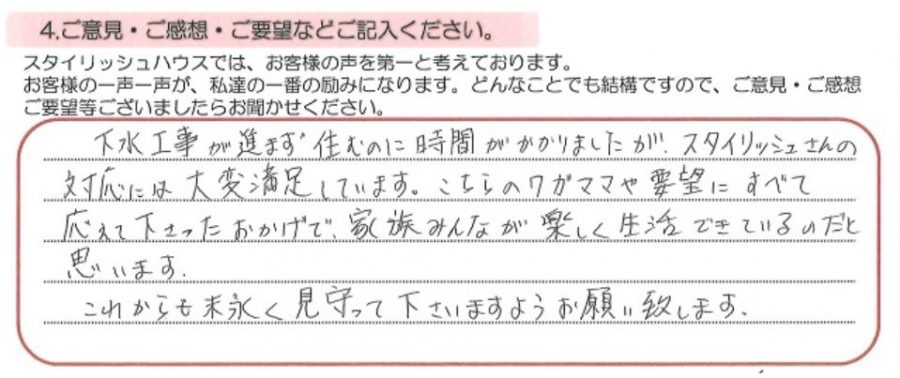 4.ご意見・ご感想・ご要望などご記入ください。
スタイリッシュハウスでは、お客様の声を第一と考えております。
お客様の一声一声が、私達の一番の励みになります。どんなことでも結構ですので、ご意見・ご感想
ご要望等ございましたらお聞かせください。
下水工事が進まず住むのに時間がかかりましたが、スタイリッシュさんの
対応には大変満足しています。こちらのワガママや要望にすべて
応えて下さったおかげで、家族みんなが楽しく生活できているのだと
思います。
これからも末永く見守って下さいますようお願い致します。